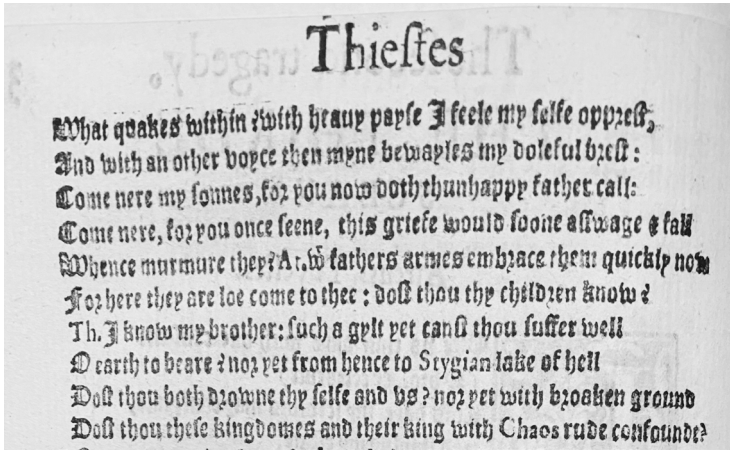 Thieſtes
What quakes within? with heauy payſe I feele my ſelfe oppreſt,
And with an other voyce then myne bewayles my doleful breſt:
Come nere my ſonnes, for you now doth thunhappy father call:
Come nere, for you once ſeene, this griefe would ſoone aſſwage & fall
Whence murmure they? At. wͭ fathers armes embrace them quickly now
For here they are loe come to thee: doſt thou thy children know?
Th. I know my brother: ſuch a gylt yet canſt thou ſuffer well
O earth to beare? nor yet from hence to Stygian lake of hell
Doſt thou both drowne thy ſelfe and vs? nor yet with broaken ground
Doſt thou theſe kingdomes and their king with Chaos rude confounde?